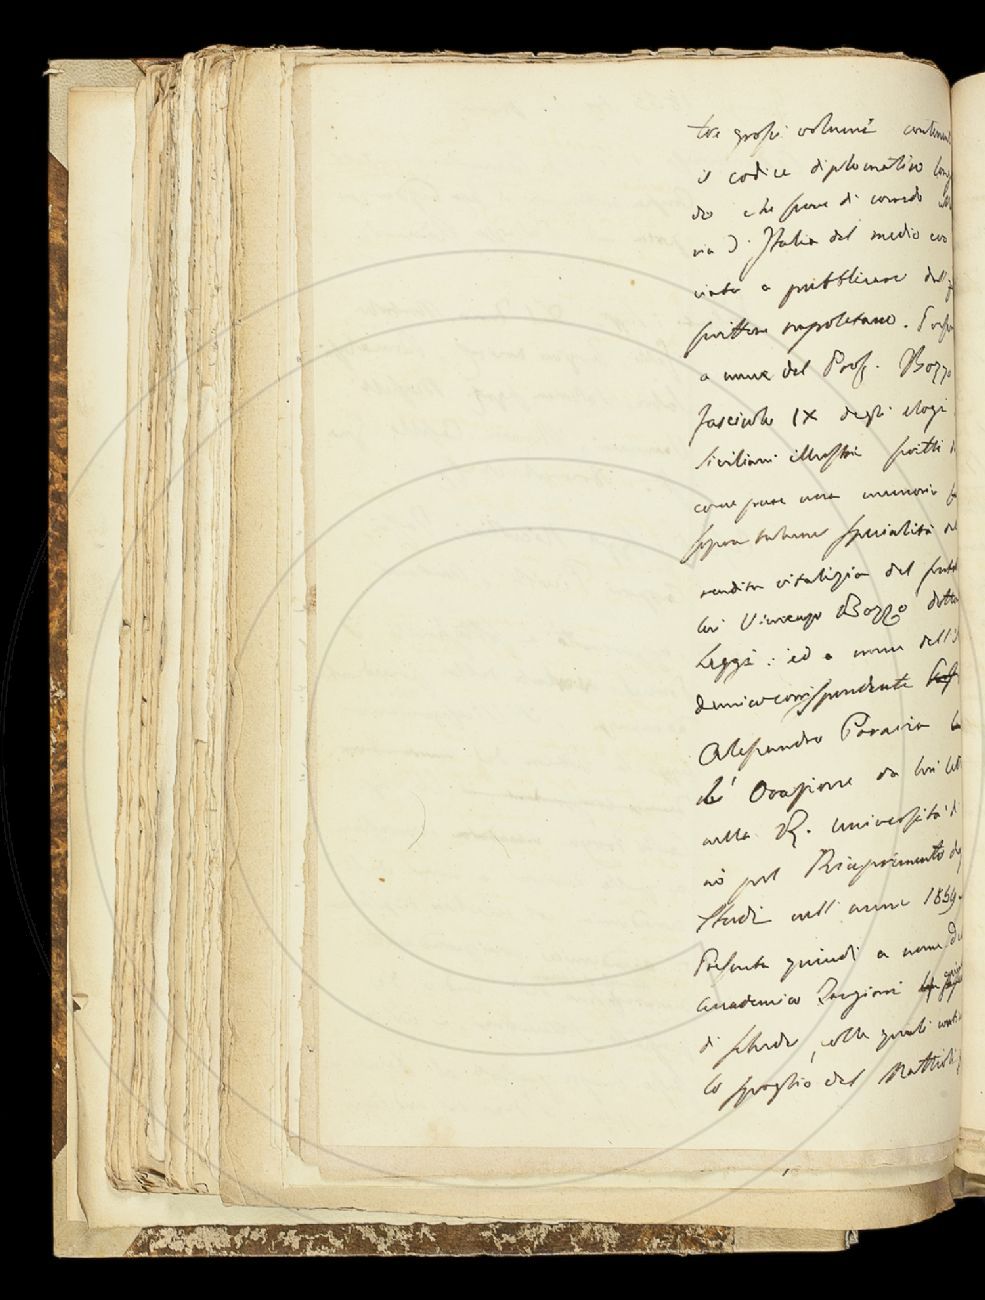 tre grossi volumi contenen
il codice diplomatico long
do che serve di corredo alla
ria d'Italia del medio evo
ciata a pubblicare dall'
scrittore napoletano.
a nome del Prof. Bozzo
fascicolo IX degli elogi
Siciliani illustri scritti
come pure una memoria
sopra talune specialità
rendita vitalizia del
lui Vincenzo Bozzo dotto
Leggi: ed a nome dell'
demico corrispondente
Alessandro Paravia
Orazione da lui let
nella R. Università di
no pel Riaprimento de
Studi nell'anno 1854.
Presenta quindi a nome
Accademico Targioni
di schede, colle quali
lo spoglio del Mattioli